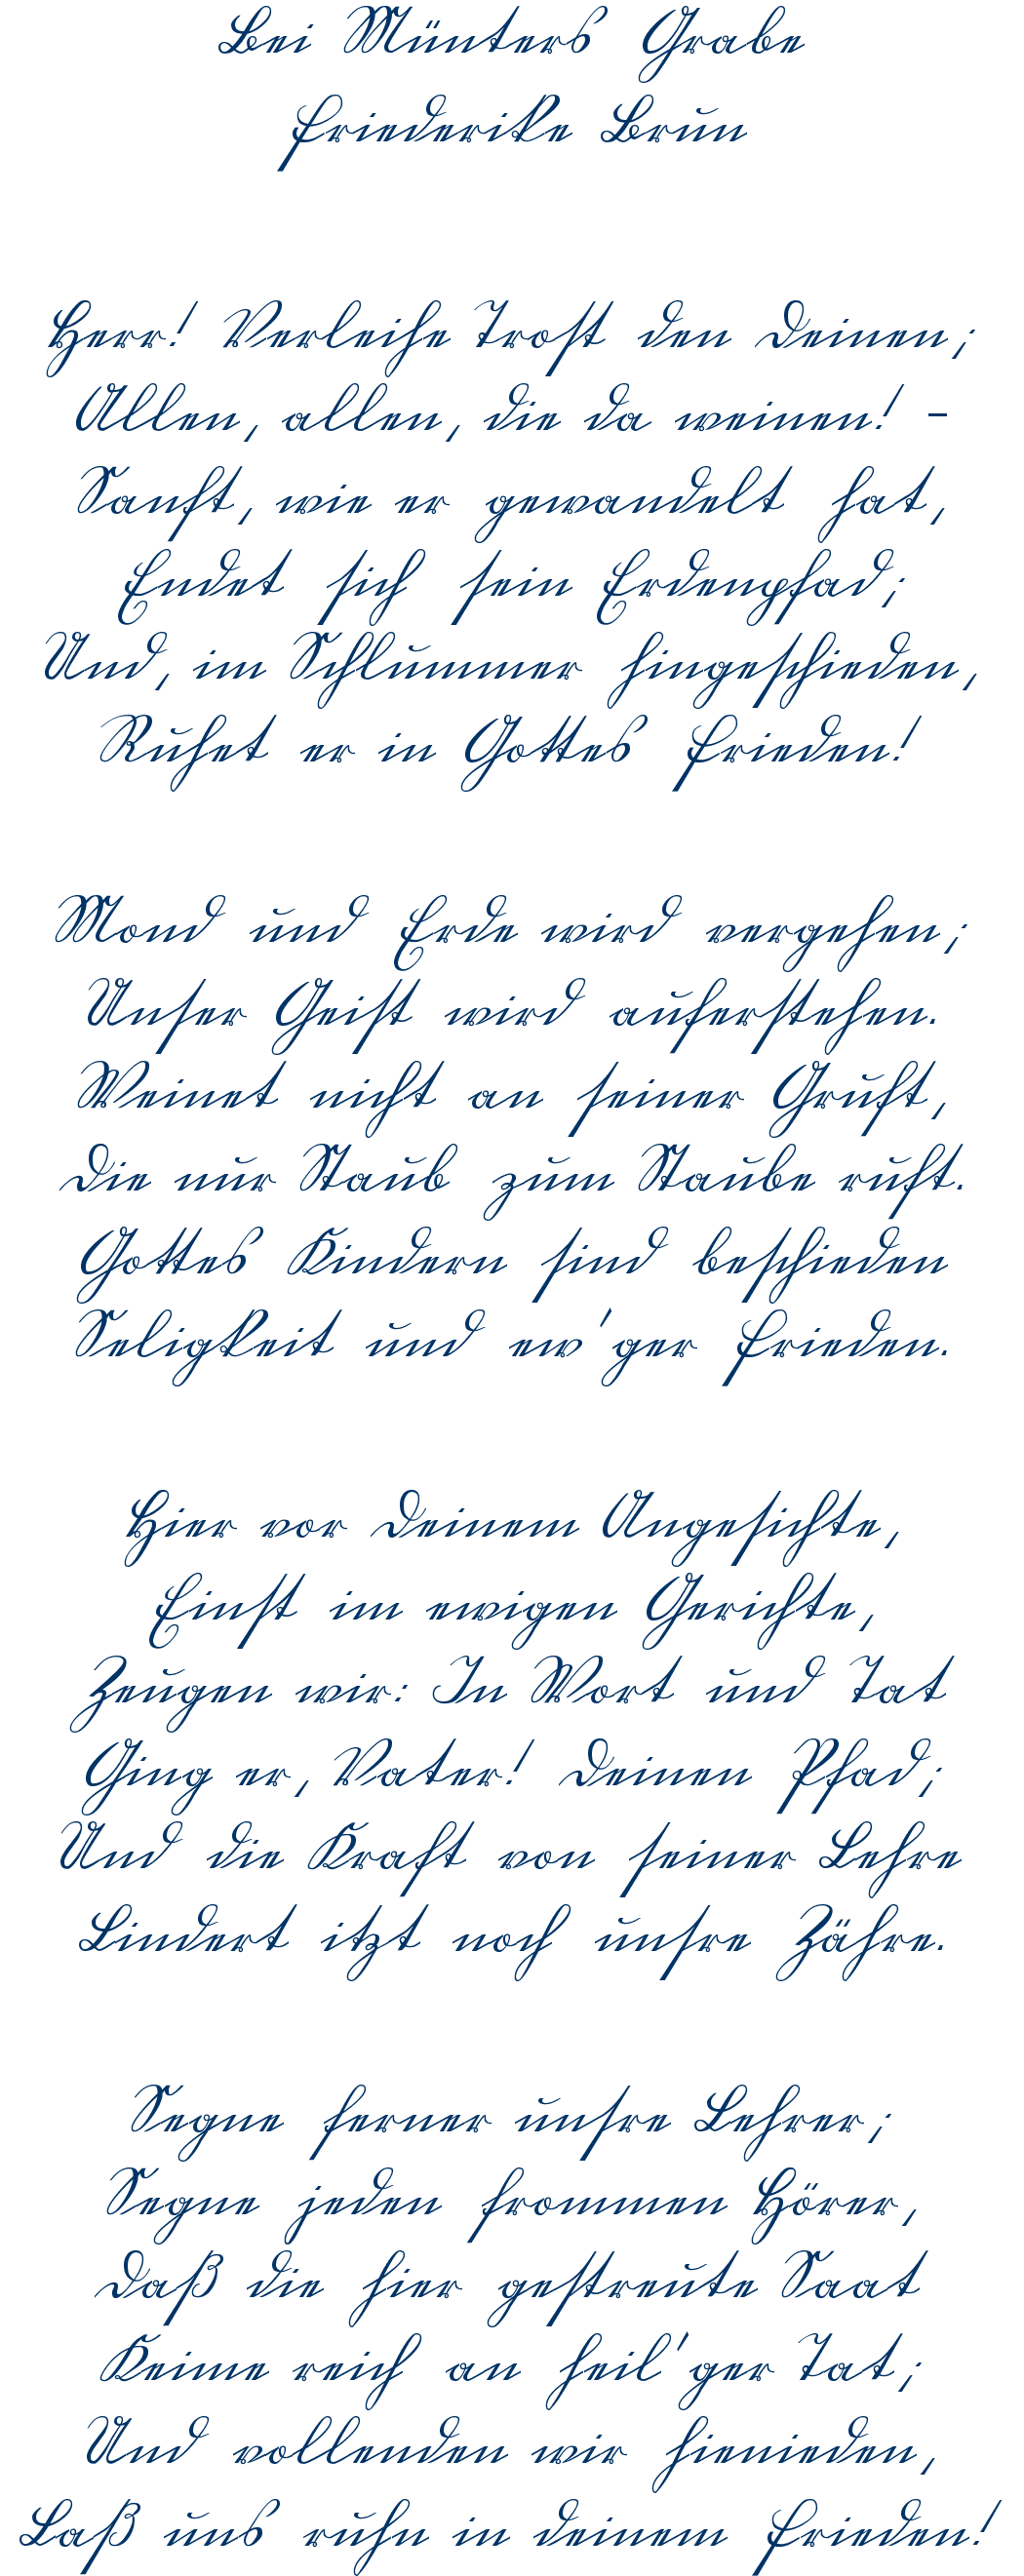 Bei Münters Grabe
Friederike Brun
Herr! Verleihe Trost den Deinen;
Allen, allen, die da weinen! -
Sanft, wie er gewandelt hat,
Endet sich sein Erdenpfad;
Und, im Schlummer hingeschieden,
Ruhet er in Gottes Frieden!
Mond und Erde wird vergehen;
Unser Geist wird auferstehen.
Weinet nicht an seiner Gruft,
Die nur Staub zum Staube ruft.
Gottes Kindern sind beschieden
Seligkeit und ew'ger Frieden.
Hier vor Deinem Angesichte,
Einst im ewigen Gerichte,
Zeugen wir: In Wort und Tat
Ging er, Vater! Deinen Pfad;
Und die Kraft von seiner Lehre
Lindert itzt noch unsre Zähre.
Segne ferner unsre Lehrer;
Segne jeden frommen Hörer,
Daß die hier gestreute Saat
Keime reich an heil'ger Tat;
Und vollenden wir hienieden,
Laß uns ruhn in Deinem Frieden!